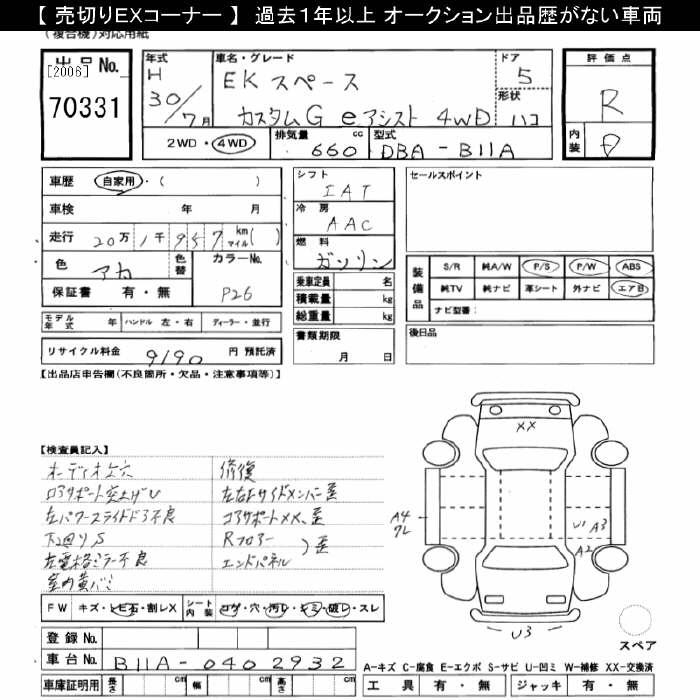 【 売切りEXコーナー 】 過去1年以上 オークション出品歴がない車両
(複合機)対応用紙
出品No.
[2006]
70331
年式
H
30/7月
車名・グレード
EKスペース
カスタムG eアシスト 4WD
ドア
5
形状
ハコ
2WD・4WD
排気量
660
cc
型式
DBA-B11A
評価点
R
内装
D
車歴
自家用・( )
車検 年 月
走行 20万1千957 km マイル( )
色 アカ
色替
カラーNo.
P26
保証書 有・無
モデル年式 年
ハンドル 左・右
ディーラー・並行
リサイクル料金 9190 円 預託済
シフト
IAT
冷房
AAC
燃料
ガソリン
乗車定員 名
積載量 kg
総重量 kg
書類期限
月 日
セールスポイント
装備品
S/R 純A/W P/S P/W ABS
純TV 純ナビ 革シート 外ナビ エアB
ナビ型番:
後日品
【出品店申告欄(不良箇所・欠品・注意事項等)】
【検査員記入】
オーディオ欠
コアサポート突上げU
左パワースライドドア不良
下廻りS
左電格ミラー不良
室内黄バミ
修復
左右Fサイドメンバー歪
コアサポートXX、歪
Rフロアー
エンドパネル
)歪
XX
A4
ワレ
U1 A3
A2
U3
スペア
FW キズ・ヒ石・割レX
シート内装 コゲ・穴・汚レ・シミ・破レ・スレ
登録No.
車台No. B11A-0402932
車庫証明用 長さ cm 幅 cm 高さ cm
A-キズ C-腐食 E-エクボ S-サビ U-凹ミ W-補修 XX-交換済
工具 有・無 ジャッキ 有・無